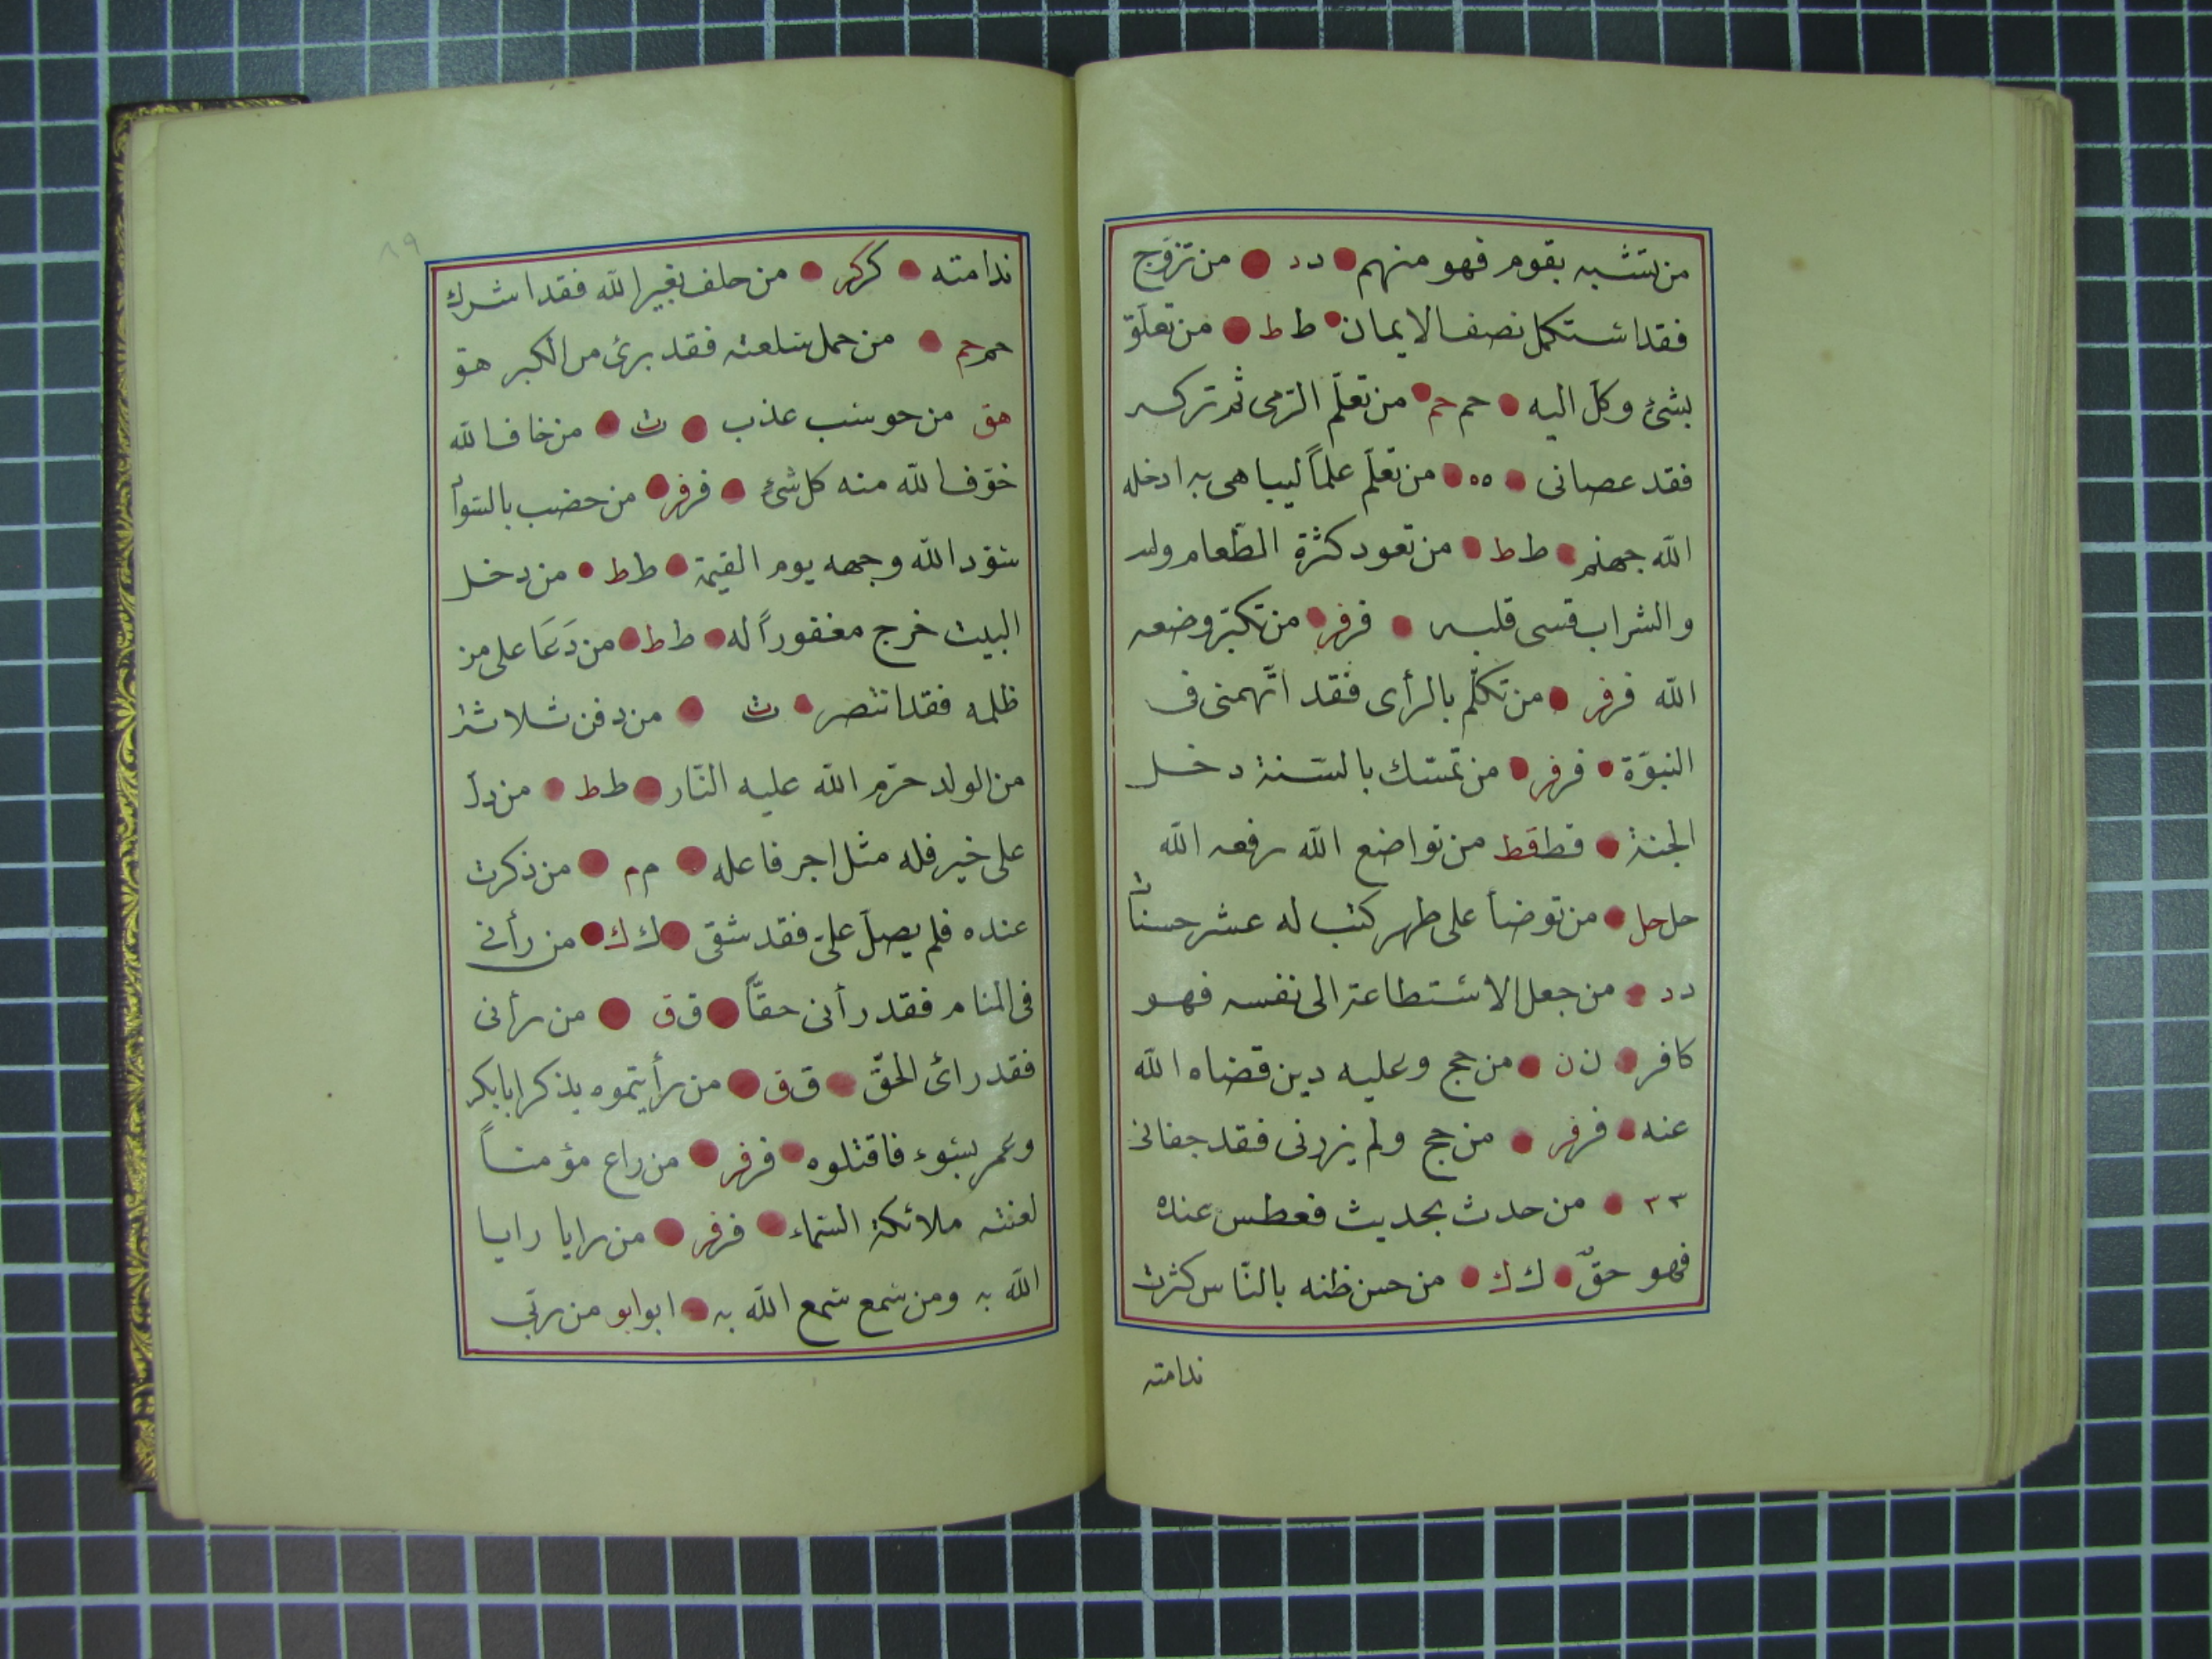 من تشبه بقوم فهو منهم د د من تزوّج
فقد استكمل نصف الايمان ط ط من تعلّق
بشئ وكل اليه حم حم من تعلّم الرّمى ثم تركه
فقد عصانى ه ه من تعلّم علماً ليباهى به ادخله
الله جهنم ط ط من تعود كثرة الطّعام ولد
والشراب قسى قلبه فر فر من تكبّر وضعه
الله فر فر من تكلّم بالرأى فقد اتّهمنى فى
النبوّة فر فر من تمسّك بالسّنة دخل
الجنة قط قط من تواضع الله رفعه الله
حل حل من توضأ على طهر كتب له عشر حسنات
د د من جعل الاستطاعة الى نفسه فهو
كافر ن ن من حج وعليه دين قضاه الله
عنه فر فر من حج ولم يزدنى فقد جفانى
٣ ٣ من حدث بحديث فعطس عنده
فهو حقّ ك ك من حسن ظنه بالنّاس كثرت
ندامته
٨٩
ندامته كر كر من حلف بغير الله فقد اشرك
حم حم من حمل سلعته فقد برئ من الكبر هق
هق من حوسب عذب ث من خاف الله
خوّف الله منه كل شئٍ فر فر من خضب بالسّواد
سوّد الله وجهه يوم القيمة ط ط من دخل
البيت خرج مغفوراً له ط ط من دَعَا على من
ظلمه فقد انتصر ث من دفن ثلاثا
من الولد حرّم الله عليه النّار ط ط من دلّ
على خير فله مثل اجر فاعله م م من ذكرت
عنده فلم يصلّ علىّ فقد شقى ك ك من رأنى
فى المنام فقد رأنى حقّاً ق ق من رأنى
فقد رائ الحقّ ق ق من رأيتموه يذكر ابا بكر
وعمر بسوء فاقتلوه فر فر من راع مؤمناً
لعنته ملائكة السّماء فر فر من رايا رايا
الله به ومن سمع سمع الله به ابو ابو من ربّى